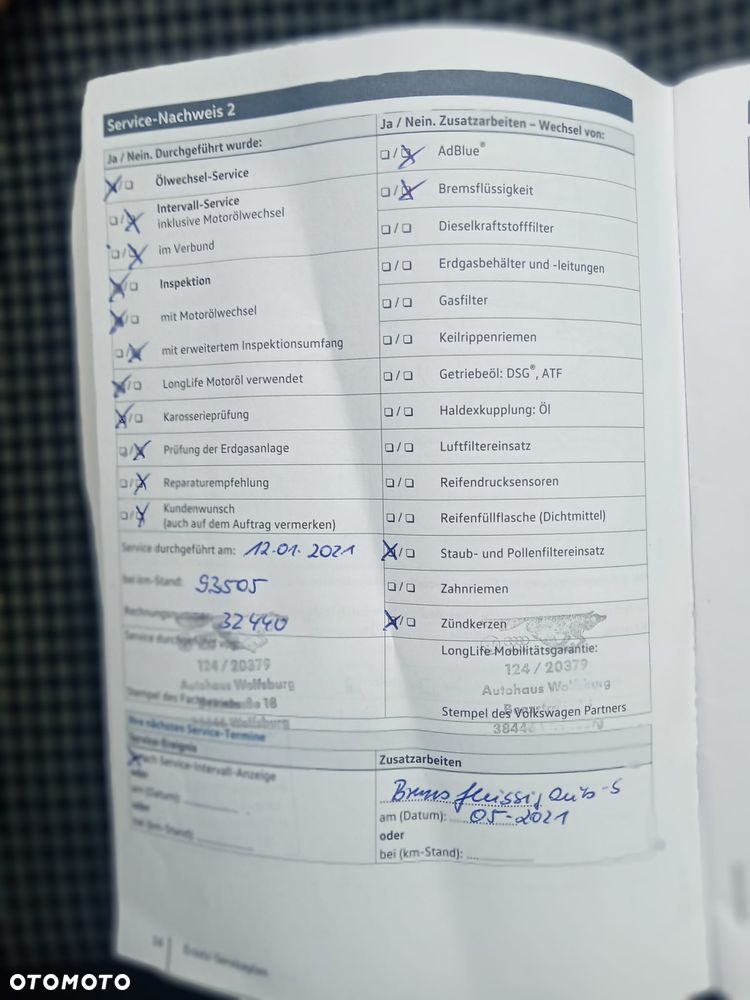 Service-Nachweis 2
Ja / Nein. Durchgeführt wurde:
Ölwechsel-Service
Intervall-Service
inklusive Motorölwechsel
im Verbund
Inspektion
mit Motorölwechsel
mit erweitertem Inspektionsumfang
LongLife Motoröl verwendet
Karosserieprüfung
Prüfung der Erdgasanlage
Reparaturempfehlung
Kundenwunsch
(auch auf dem Auftrag vermerken)
Service durchgeführt am: 12.01.2021
bei km-Stand: 93505
32440
Service durchgeführt von:
124 / 20379
Autohaus Wolfsburg
Stempel des
18
38446 Wolfsburg
Ja / Nein. Zusatzarbeiten – Wechsel von:
AdBlue®
Bremsflüssigkeit
Dieselkraftstofffilter
Erdgasbehälter und -leitungen
Gasfilter
Keilrippenriemen
Getriebeöl: DSG®, ATF
Haldexkupplung: Öl
Luftfiltereinsatz
Reifendrucksensoren
Reifenfüllflasche (Dichtmittel)
Staub- und Pollenfiltereinsatz
Zahnriemen
Zündkerzen
LongLife Mobilitätsgarantie:
124 / 20379
Autohaus Wolfsburg
Stempel des Volkswagen Partners
Ihre nächsten Service-Termine
Service-Ereignis
nach Service-Intervall-Anzeige
oder
am (Datum):
oder
bei (km-Stand):
Zusatzarbeiten
am (Datum): 05-2021
oder
bei (km-Stand):
OTOMOTO